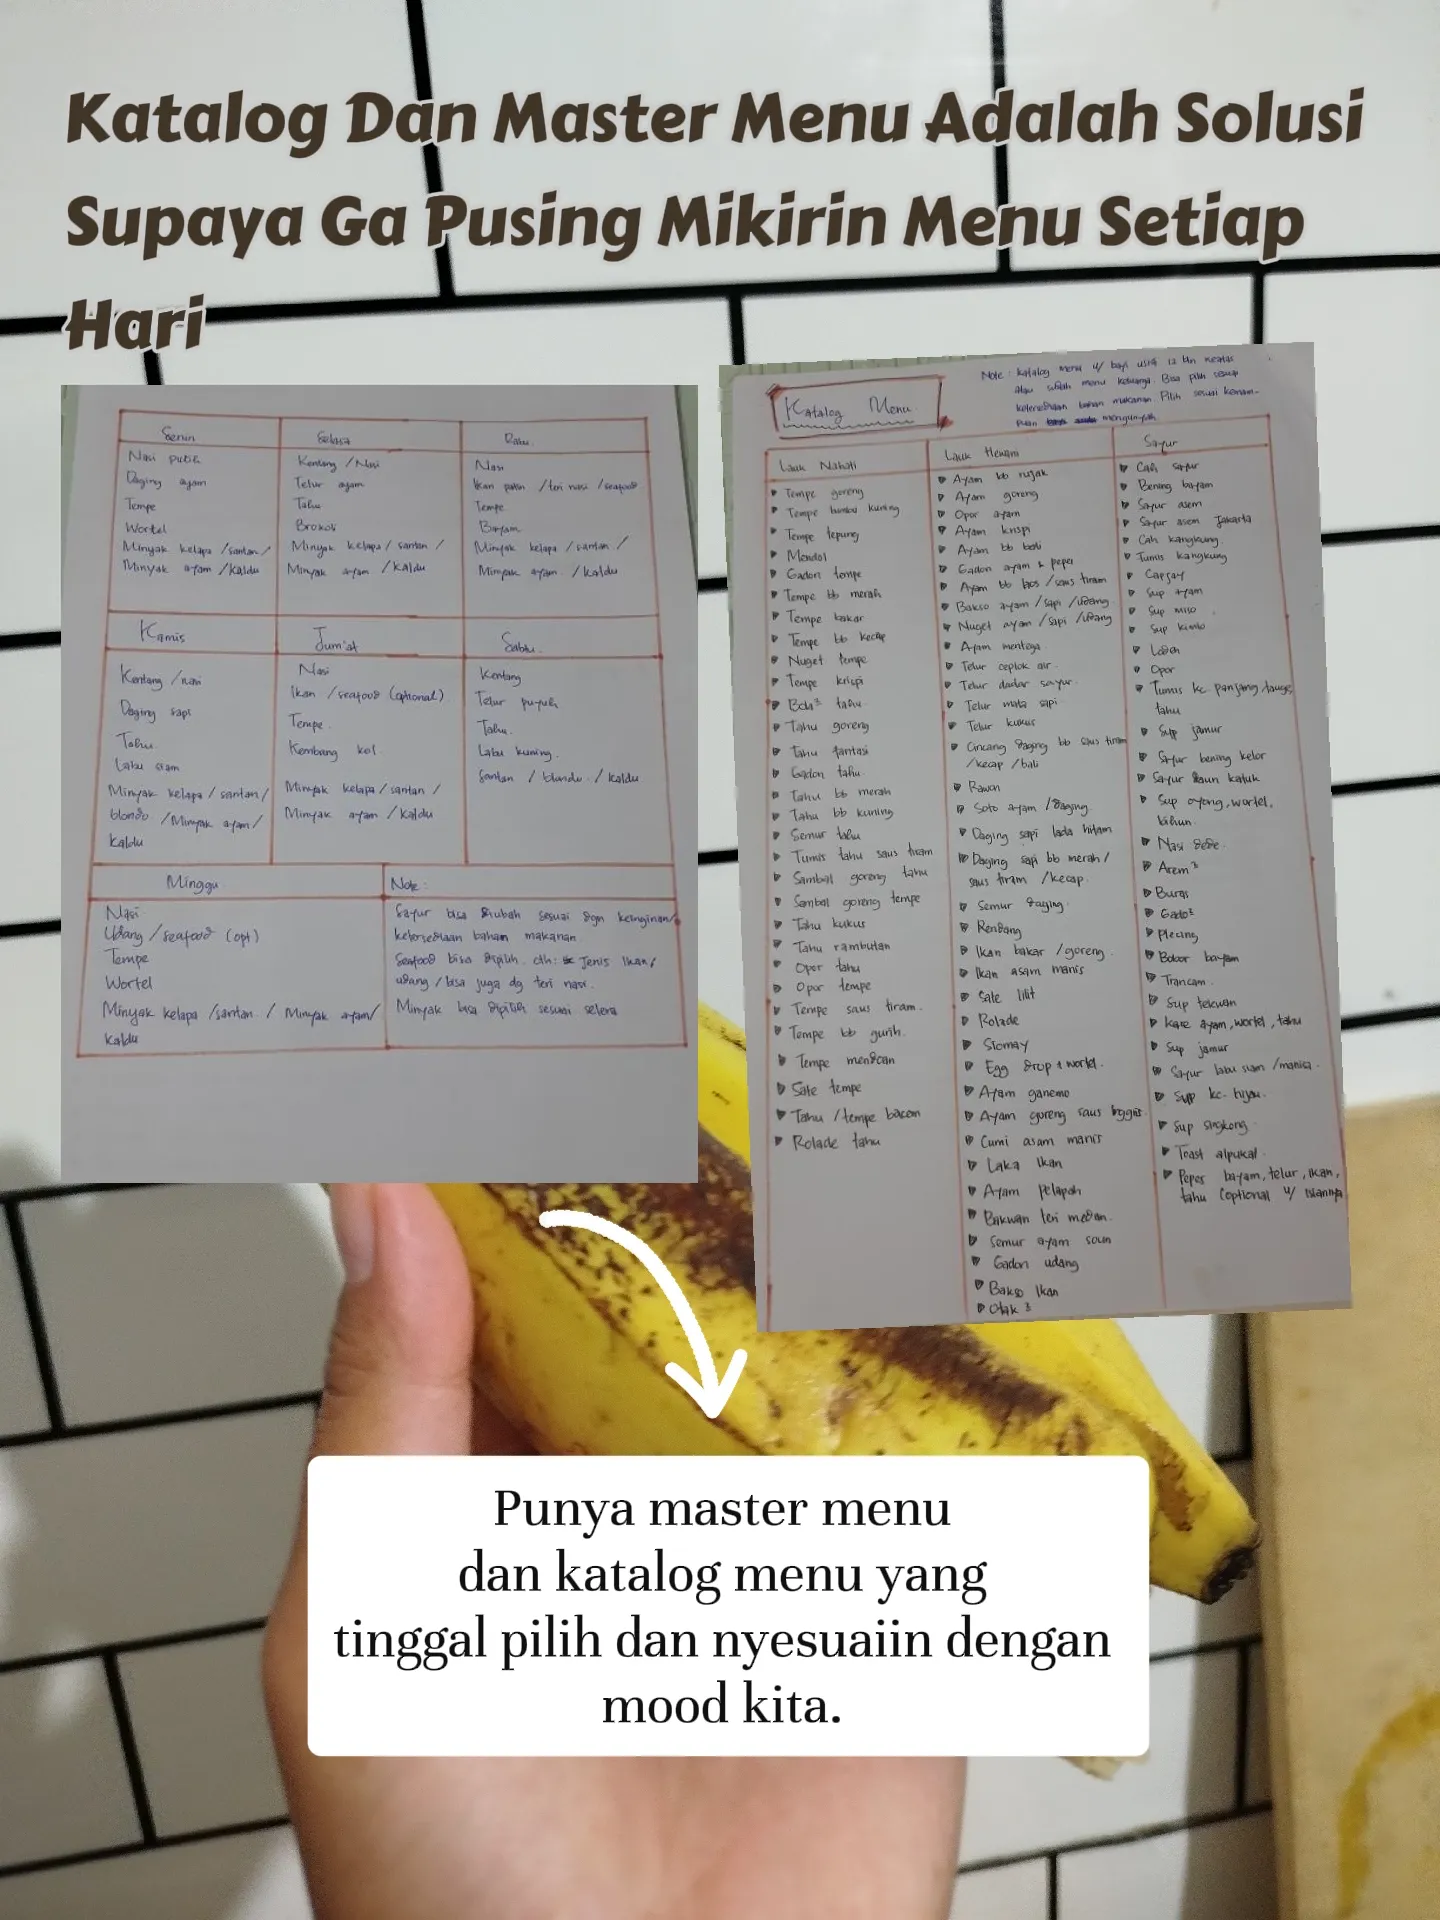 Katalog Dan Master Menu Adalah Solusi
Supaya Ga Pusing Mikirin Menu Setiap
Hari
Senin
Nasi putih
Daging ayam
Tempe
Wortel
Minyak kelapa /santan/
Minyak ayam /kaldu
Selasa
Kentang /Nasi
Telur ayam
Tahu
Brokoli
Minyak kelapa / santan /
Minyak ayam / kaldu
Rabu.
Nasi
Ikan patin /teri nasi /seafood
Tempe
Bayam
Minyak kelapa / santan /
Minyak ayam. / kaldu
Kamis
Kentang / nasi
Daging sapi
Tahu.
Labu siam
Minyak kelapa / santan/
blondo /Minyak ayam/
kaldu
Jum'at
Nasi
Ikan /seafood (optional)
Tempe.
Kembang kol.
Minyak kelapa / santan /
Minyak ayam / kaldu
Sabtu.
Kentang
Telur puyuh
Tahu.
Labu kuning.
Santan / blondo. / kaldu
Minggu
Nasi
Udang / seafood (opt)
Tempe
Wortel
Minyak kelapa /santan. / Minyak ayam/
kaldu
Note :
Sayur bisa diubah sesuai dgn keinginan/
ketersediaan bahan makanan
Seafood bisa dipilih. cth: Jenis Ikan,
udang / bisa juga dg teri nasi.
Minyak bisa dipilih sesuai selera
Katalog Menu
Note : katalog menu u/ bayi usia 12 bln keatas
atau sudah menu keluarga. Bisa pilih sesuai
ketersediaan bahan makanan. Pilih sesuai kemam-
puan mengunyah
Lauk Nabati
Tempe goreng
Tempe bumbu kuning
Tempe tepung
Mendol
Gadon tempe
Tempe bb merah
Tempe bakar
Tempe bb kecap
Nuget tempe
Tempe krispi
Bola² tahu.
Tahu goreng
Tahu fantasi
Gadon tahu.
Tahu bb merah
Tahu bb kuning
Semur tahu
Tumis tahu saus tiram
Sambal goreng tahu
Sambal goreng tempe
Tahu kukus
Tahu rambutan
Opor tahu
Opor tempe
Tempe saus tiram.
Tempe bb gurih.
Tempe mendoan
Sate tempe
Tahu /tempe bacem
Rolade tahu
Lauk Hewani
Ayam bb rujak
Ayam goreng
Opor ayam
Ayam krispi
Ayam bb bali
Gadon ayam & pepes
Ayam bb laos / saus tiram
Bakso ayam /sapi /udang
Nuget ayam /sapi /udang
Ayam mentega.
Telur ceplok air.
Telur dadar sayur.
Telur mata sapi
Telur kukus
Cincang daging bb saus tiram
/kecap /bali
Rawon
Soto ayam /daging.
Daging sapi lada hitam
Daging sapi bb merah /
saus tiram /kecap.
Semur daging.
Rendang
Ikan bakar /goreng.
Ikan asam manis
Sate lilit
Rolade
Siomay
Egg drop + wortel.
Ayam ganemo
Ayam goreng saus Inggris.
Cumi asam manis
Laka ikan
Ayam pelapah
Bakwan teri medan.
Semur ayam soun
Gadon udang
Bakso Ikan
Otak ²
Sayur
Cah sayur
Bening bayam
Sayur asem
Sayur asem Jakarta
Cah kangkung
Tumis kangkung
Capjay
Sup ayam
Sup miso
Sup kimlo
Lodeh
Opor
Tumis kc. panjang, tauge,
tahu
Sup jamur
Sayur bening kelor
Sayur daun katuk
Sup oyong, wortel,
bihun.
Nasi
Arem²
Buras
Gado²
Plecing
Bobor bayam
Trancam.
Sup tekwan
Kare ayam, wortel, tahu
Sup jamur
Sayur labu siam /manisa.
Sup kc. hijau.
Sup singkong.
Toast alpukat.
Pepes bayam, telur, ikan,
tahu (optional u/ isiannya
Punya master menu
dan katalog menu yang
tinggal pilih dan nyesuaiin dengan
mood kita.